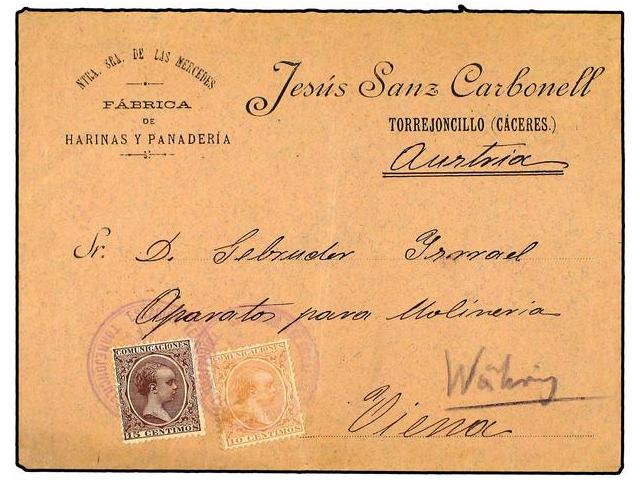 NTRA. SRA. DE LAS MERCEDES
FÁBRICA
DE
HARINAS Y PANADERÍA
Jesús Sanz Carbonell
TORREJONCILLO (CÁCERES.)
Austria
Sr. D. Gebruder Israel
Aparatos para Molineria
Währing
Viena
COMUNICACIONES
15 CENTIMOS
COMUNICACIONES
10 CENTIMOS